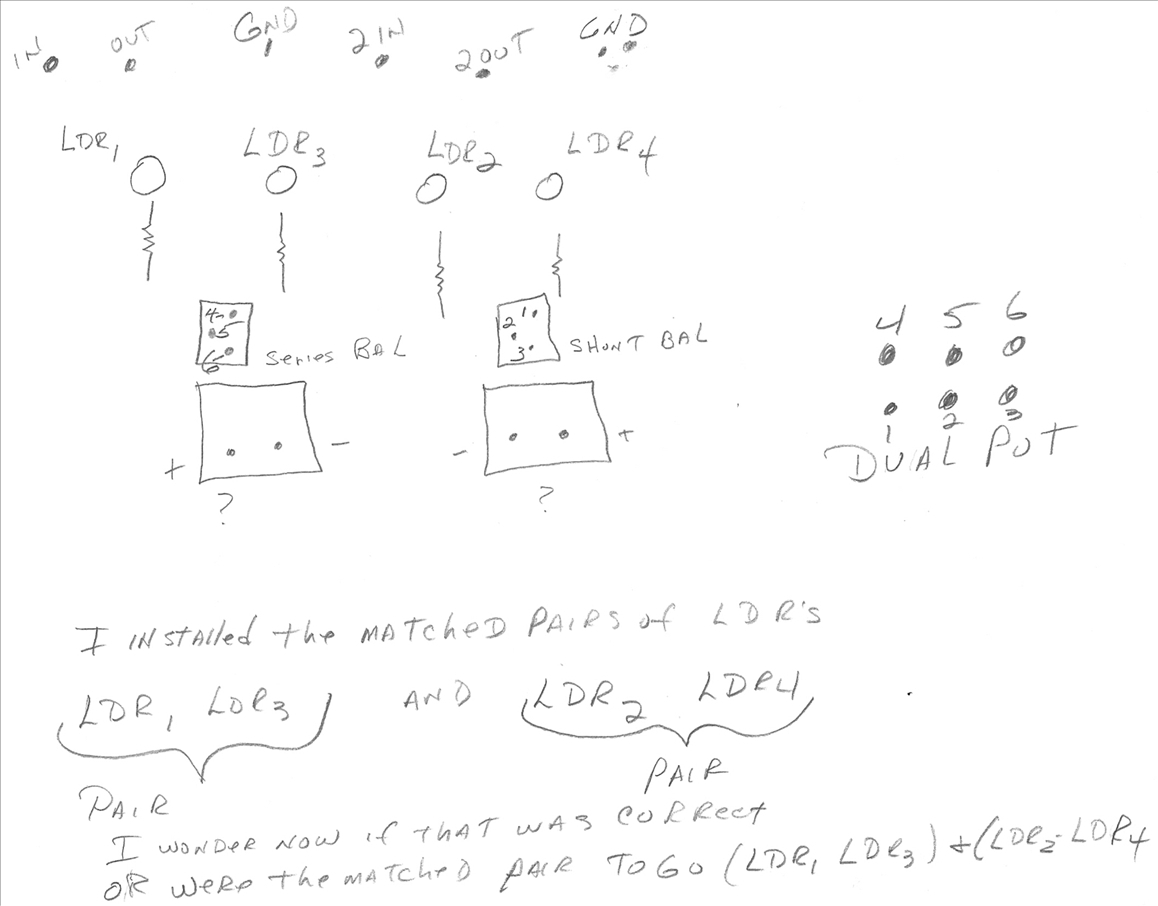 IN OUT GND 2IN 2OUT GND
LDR1 LDR3 LDR2 LDR4
4 5 6
4 1
5 2
6 3
Series BAL SHUNT BAL
+ - - +
? ?
1 2 3
DUAL POT
I INStAlled the MATCHeD PAIRS of LDR's
LDR1 LDR3 AND LDR2 LDR4
PAIR PAIR
I WONDER NOW if tHAT WAS CORRect
OR WERe the MATCHeD PAIR TO GO (LDR1 LDR3) + (LDR2-LDR4